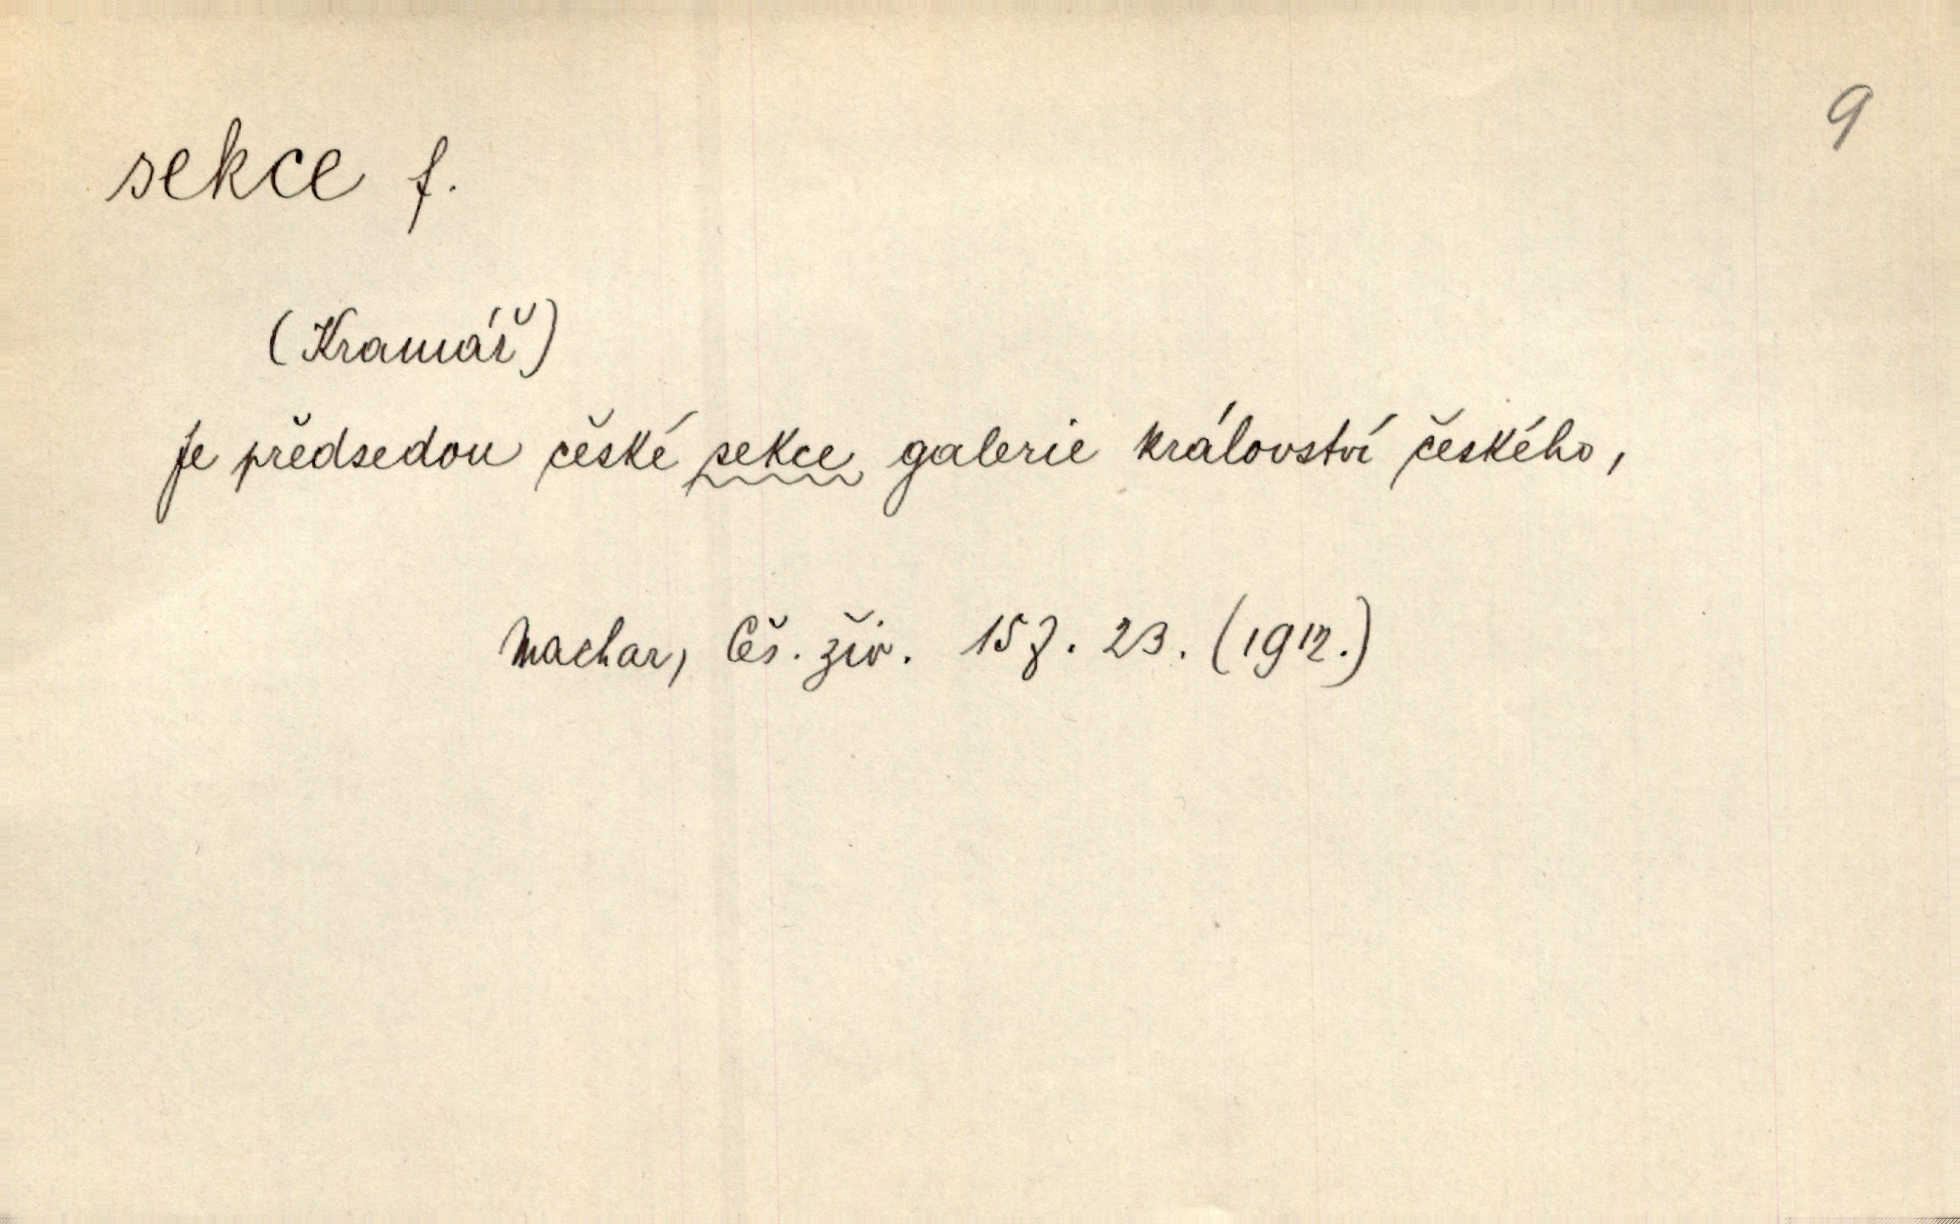 9
sekce f.
(Kramář)
Je předsedou české sekce galerie království českého,
Machar, Čes. živ. 157. 23. (1912.)